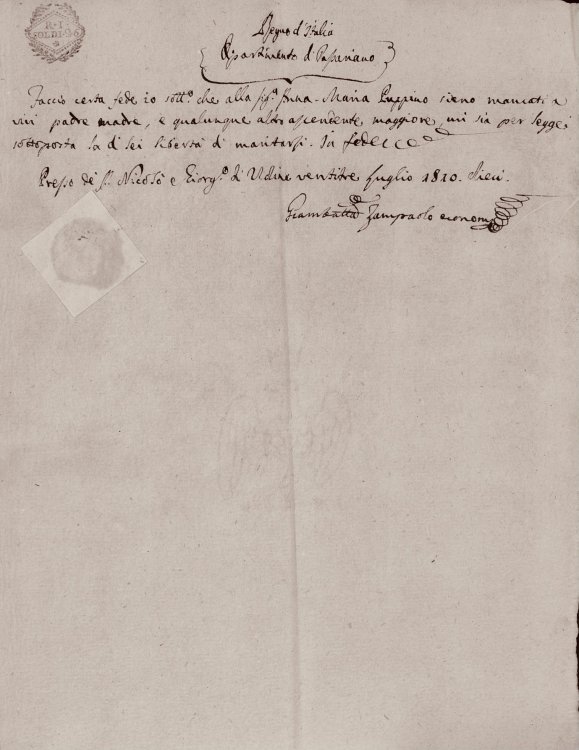 R. I.
SOLDI 26
Regno d'Italia
Dipartimento di Passariano
Faccio certa fede io sott.º che alla sig.ª Anna-Maria Puppino sieno mancati a
vivi padre madre, e qualunque altro ascendente, maggiore, cui sia per legge
sottoposta la di lei libertà di maritarsi. In fede
Presso de' S. Nicolò e Giorg.º di Udine ventitre Luglio 1810. dieci.
Giambatta Zampaolo economo